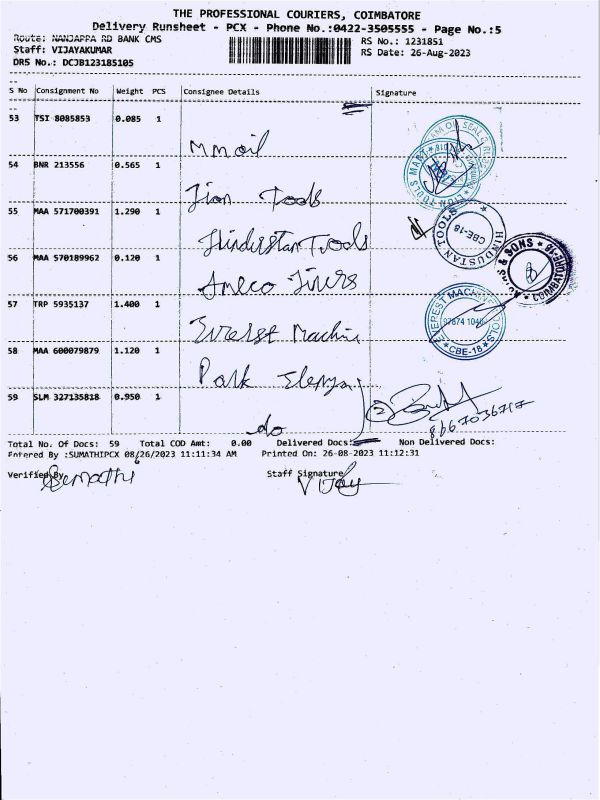 THE PROFESSIONAL COURIERS, COIMBATORE
Delivery Runsheet - PCX - Phone No.:0422-3505555 - Page No.:5
Route: NANJAPPA RD BANK CMS
RS No.: 1231851
Staff: VIJAYAKUMAR
RS Date: 26-Aug-2023
DRS No.: DCJB123185105
S No Consignment No Weight PCS Consignee Details Signature
53 TSI 8085853 0.085 1
M mail
54 BNR 213556 0.565 1
Tools
55 MAA 571700391 1.290 1
Hindustan Tools
56 MAA 570189962 0.120 1
Ameco
57 TRP 5935137 1.400 1
Everest Machine
58 MAA 600079879 1.120 1
Park
59 SLM 327135818 0.950 1
do
TOOLS MART
HINDUSTAN TOOLS
CBE-18
& SONS
COIMBATORE-18
EVEREST MACHINE TOOLS
CBE-18
2
8667036717
Total No. Of Docs: 59 Total COD Amt: 0.00 Delivered Docs: Non Delivered Docs:
Entered By :SUMATHIPCX 08/26/2023 11:11:34 AM Printed On: 26-08-2023 11:12:31
Verified By Sumathi
Staff Signature Vijay